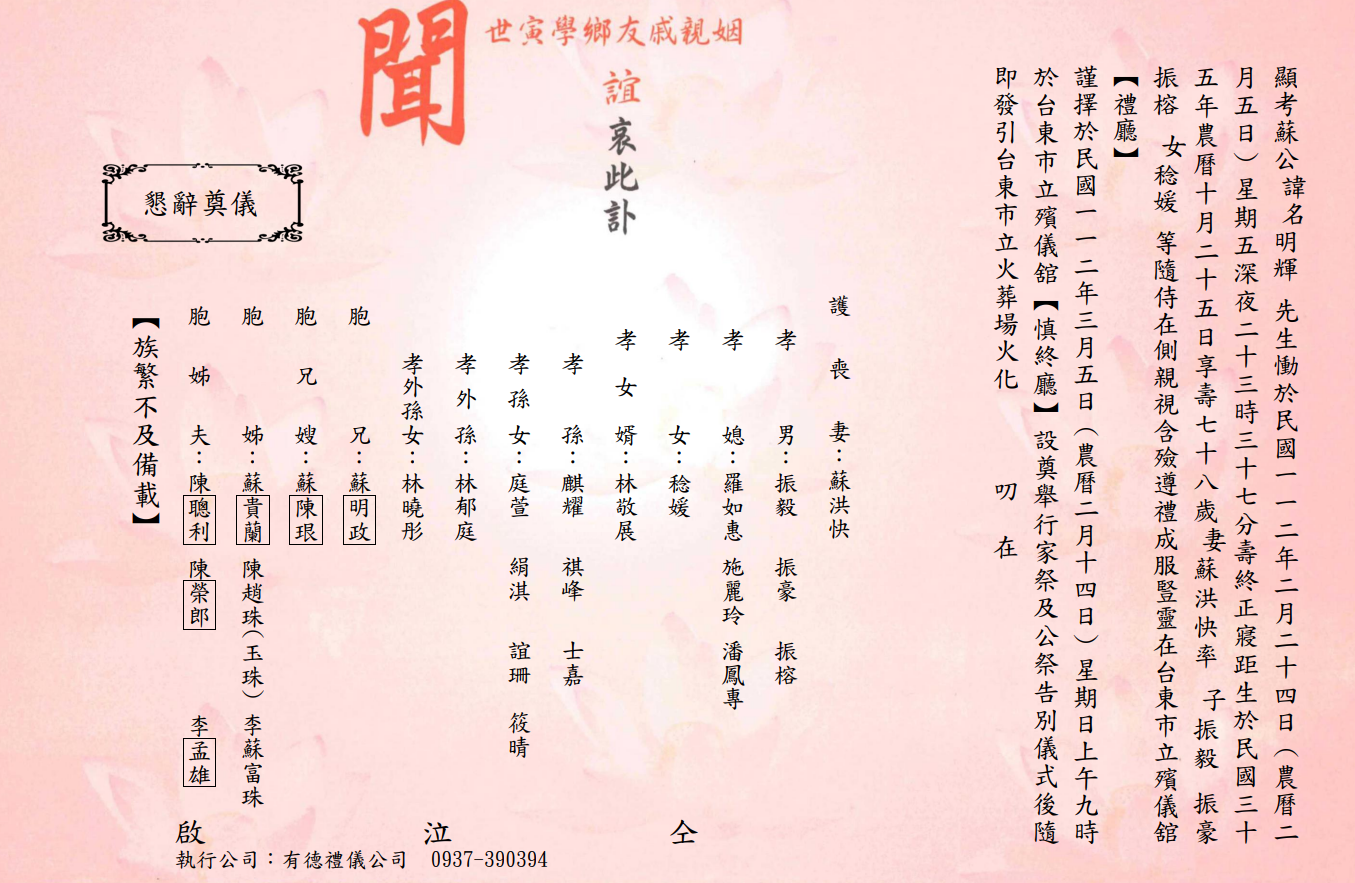 顯考蘇公諱名明輝 先生慟於民國一一二年二月二十四日（農曆二
月五日）星期五深夜二十三時三十七分壽終正寢距生於民國三十
五年農曆十月二十五日享壽七十八歲妻蘇洪快率 子振毅 振豪
振榕 女稔媛 等隨侍在側親視含殮遵禮成服豎靈在台東市立殯儀舘
【禮廳】
謹擇於民國一一二年三月五日（農曆二月十四日）星期日上午九時
於台東市立殯儀舘【慎終廳】設奠舉行家祭及公祭告別儀式後隨
即發引台東市立火葬場火化 叨 在
姻親戚友鄉學寅世
誼
哀此訃
聞
護喪妻：蘇洪快
孝男：振毅 振豪 振榕
孝媳：羅如惠 施麗玲 潘鳳專
孝女：稔媛
孝女婿：林敬展
孝孫：麒耀 祺峰 士嘉
孝孫女：庭萱 絹淇 誼珊 筱晴
孝外孫：林郁庭
孝外孫女：林曉彤
胞兄：蘇明政
胞兄嫂：蘇陳珢
胞姊：蘇貴蘭 陳趙珠（玉珠）李蘇富珠
胞姊夫：陳聰利 陳榮郎 李孟雄
【族繁不及備載】
仝 泣 啟
懇辭奠儀
執行公司：有德禮儀公司 0937-390394